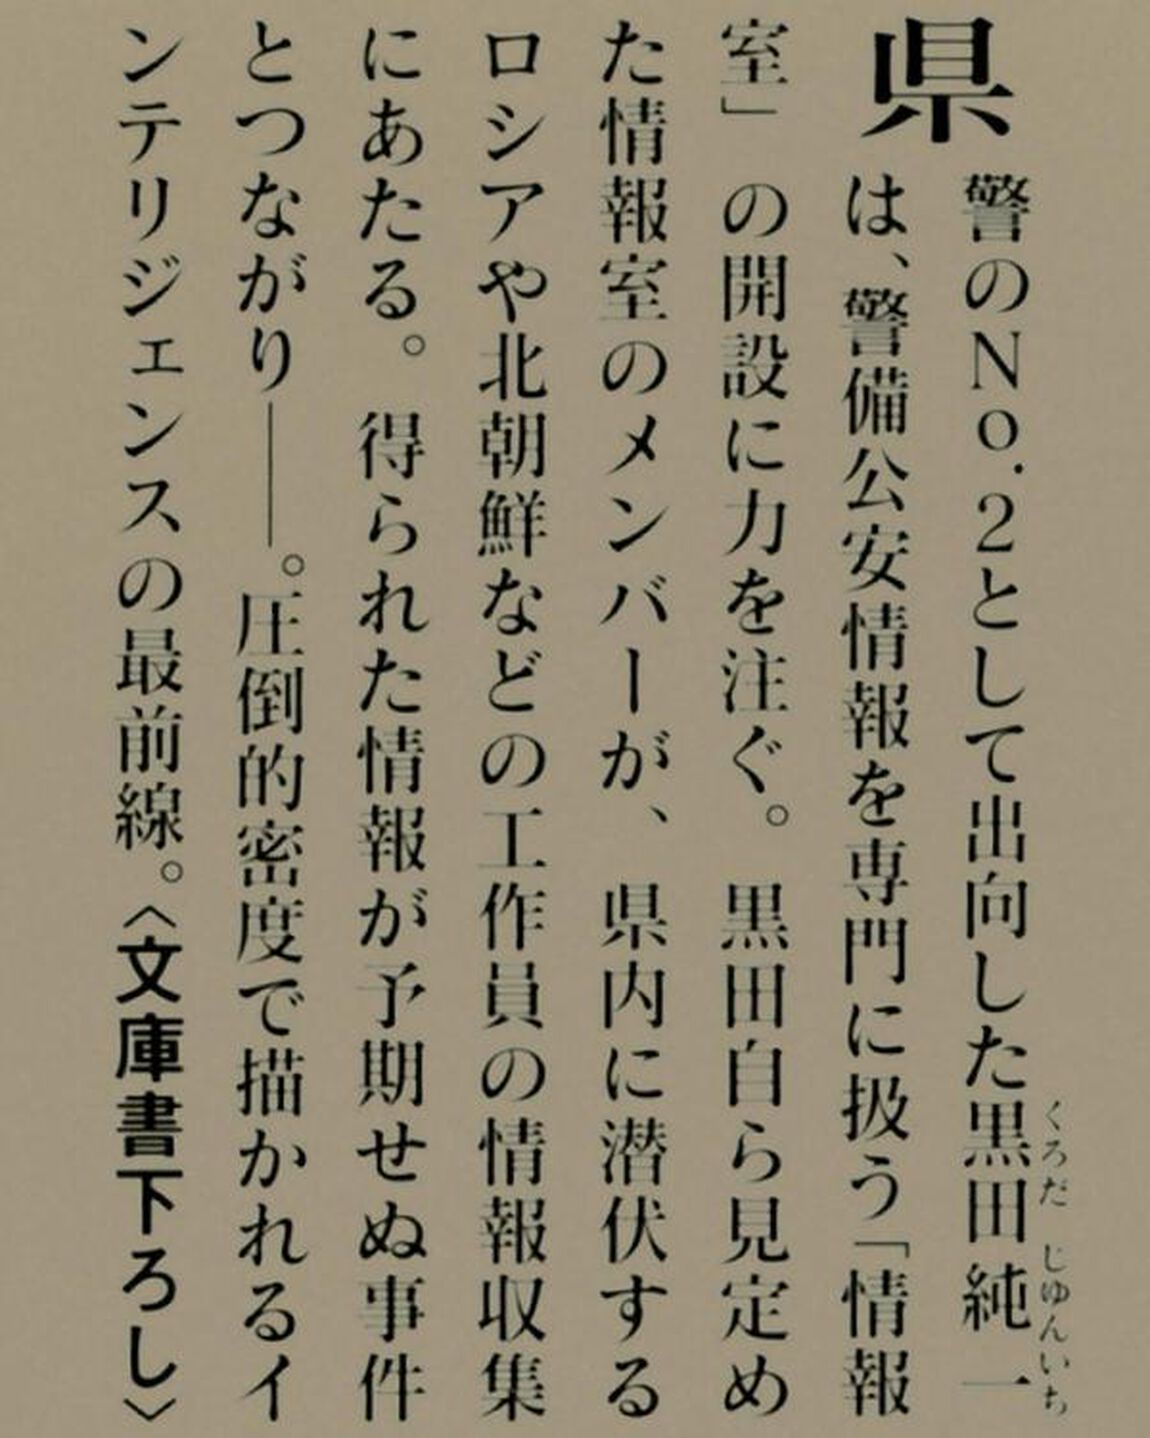 県警のNo.2として出向した黒田純一
くろだ じゆんいち
は、警備公安情報を専門に扱う「情報
室」の開設に力を注ぐ。黒田自ら見定め
た情報室のメンバーが、県内に潜伏する
ロシアや北朝鮮などの工作員の情報収集
にあたる。得られた情報が予期せぬ事件
とつながり──。圧倒的密度で描かれるイ
ンテリジェンスの最前線。〈文庫書下ろし〉